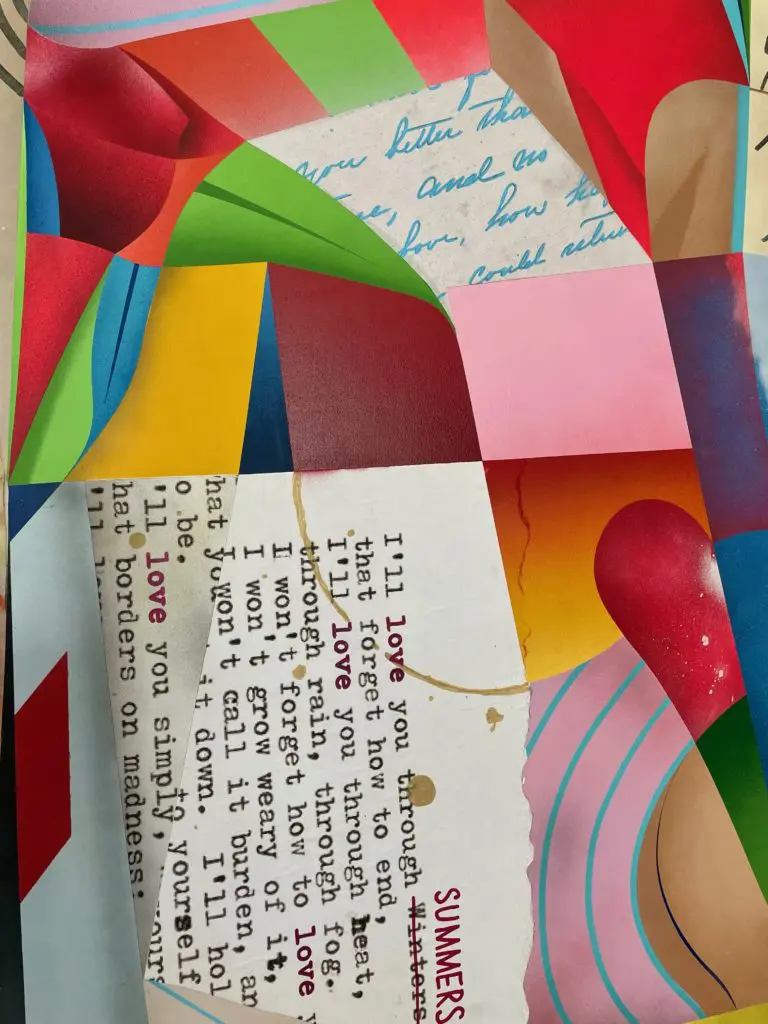 you better tha
e, and no
love, how
could retur
SUMMERS
I'll love you through Winters
that forget how to end,
I'll love you through heat,
through rain, through fog.
I won't forget how to love y
I won't grow weary of it,
I won't call it burden, an
it down. I'll hol
to yourself
yours
hat you
o be.
'll love you simply,
hat borders on madness:
'll